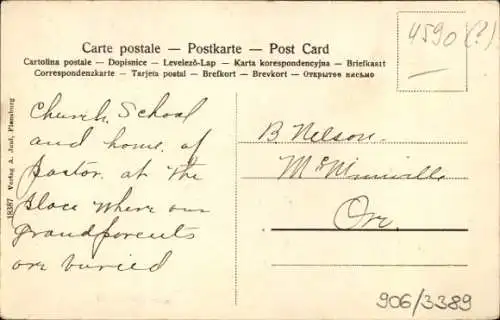 4590(?)
Carte postale — Postkarte — Post Card
Cartolina postale — Dopisnice — Levelező-Lap — Karta korespondencyjna — Briefkaart
Correspondenzkarte — Tarjeta postal — Brefkort — Brevkort — Открытое письмо
Church, School
and home of
pastor at the
place where our
grandparents
are buried
B. Nelson.
McMinnville
Ore.
18387 Verlag A. Jast, Flensburg
906/3389